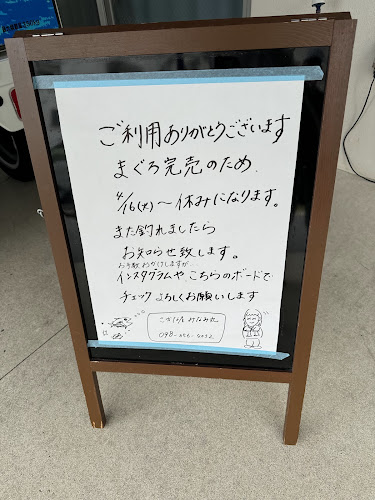 ご利用ありがとうございます
まぐろ完売のため
4/16(木)〜休みになります。
また釣れましたら
お知らせ致します。
お手数おかけしますが
インスタグラムや、こちらのボードで
チェックよろしくお願いします
みなみ丸